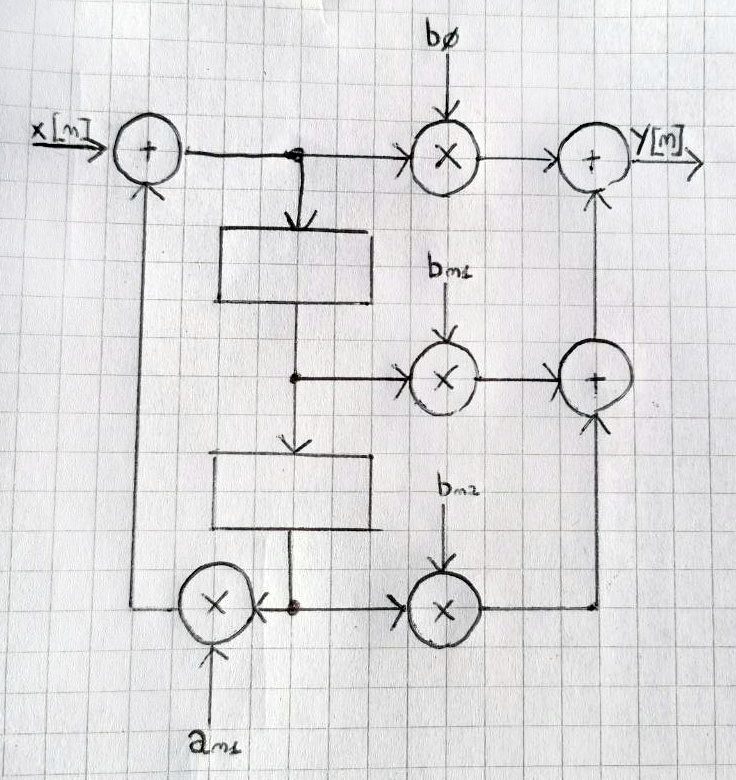 bø
x[n]
+
×
+
y[n]
bm1
×
+
bm2
×
×
am1